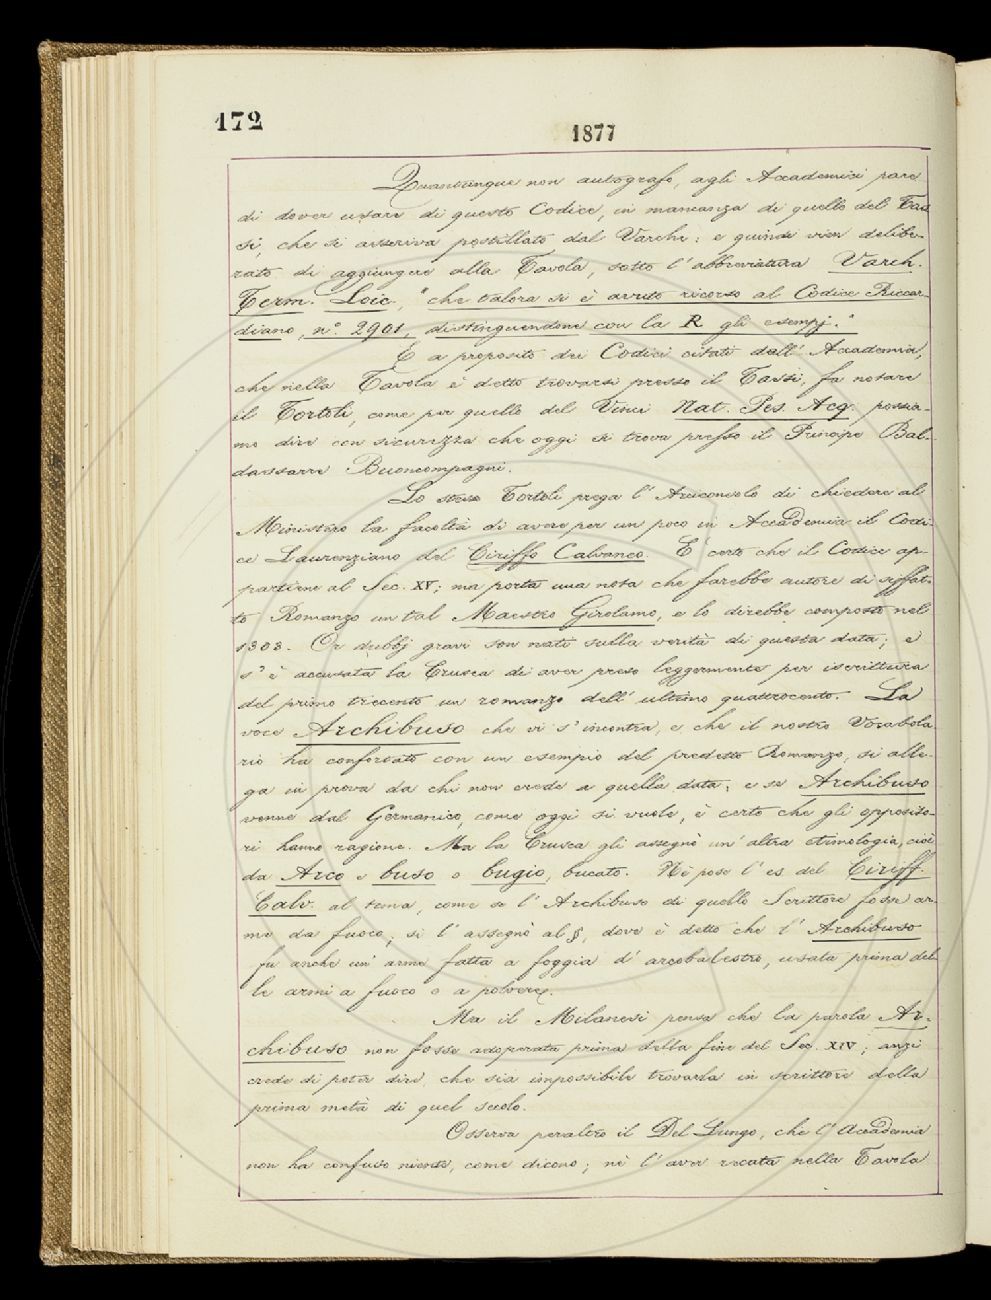 172
1877
Quantunque non autografo, agli Accademici pare
di dover usare di questo Codice, in mancanza di quello del Tas-
si, che si asseriva postillato dal Varchi: e quindi vien delibe-
rato di aggiungere alla Tavola, sotto l'abbreviatura Varch.
Term. Loic., "che talora si è avuto ricorso al Codice Riccar-
diano, n.° 2901, distinguendone con la R gli esempj."
E a proposito dei Codici citati dall'Accademia,
che nella Tavola è detto trovarsi presso il Tassi, fa notare
il Tortoli, come per quello del Vinci Nat. Pes. Acq. possia-
mo dire con sicurezza che oggi si trova presso il Principe Bal-
dassarre Buoncompagni.
Lo stesso Tortoli prega l'Arciconsolo di chiedere al
Ministero la facoltà di avere per un poco in Accademia il Codi-
ce Laurenziano del Ciriffo Calvaneo. È certo che il Codice ap-
partiene al Sec. XV; ma porta una nota che farebbe autore di siffat-
to Romanzo un tal Maestro Girolamo, e lo direbbe composto nel
1303. Or dubbj gravi son nati sulla verità di questa data; e
s'è accusata la Crusca di aver preso leggermente per iscrittura
del primo trecento un romanzo dell'ultimo quattrocento. La
voce Archibuso che vi s'incontra, e che il nostro Vocabola-
rio ha confortato con un esempio del predetto Romanzo, si alle-
ga in prova da chi non crede a quella data; e se Archibuso
venne dal Germanico, come oggi si vuole, è certo che gli opposito-
ri hanno ragione. Ma la Crusca gli assegnò un'altra etimologia, cioè
da Arco e buso o bugio, bucato. Nè pose l'es. del Ciriff.
Calv. al tema, come se l'Archibuso di quello Scrittore fosse ar-
me da fuoco; sì l'assegnò al §, dove è detto che l'Archibuso
fu anche un'arme fatta a foggia d'arcobalestro, usata prima del-
le armi a fuoco o a polvere.
Ma il Milanesi pensa che la parola Ar-
chibuso non fosse adoperata prima della fine del Sec. XIV; anzi
crede di poter dire, che sia impossibile trovarla in scrittore della
prima metà di quel secolo.
Osserva peraltro il Del Lungo, che l'Accademia
non ha confuso niente, come dicono; nè l'aver recata nella Tavola